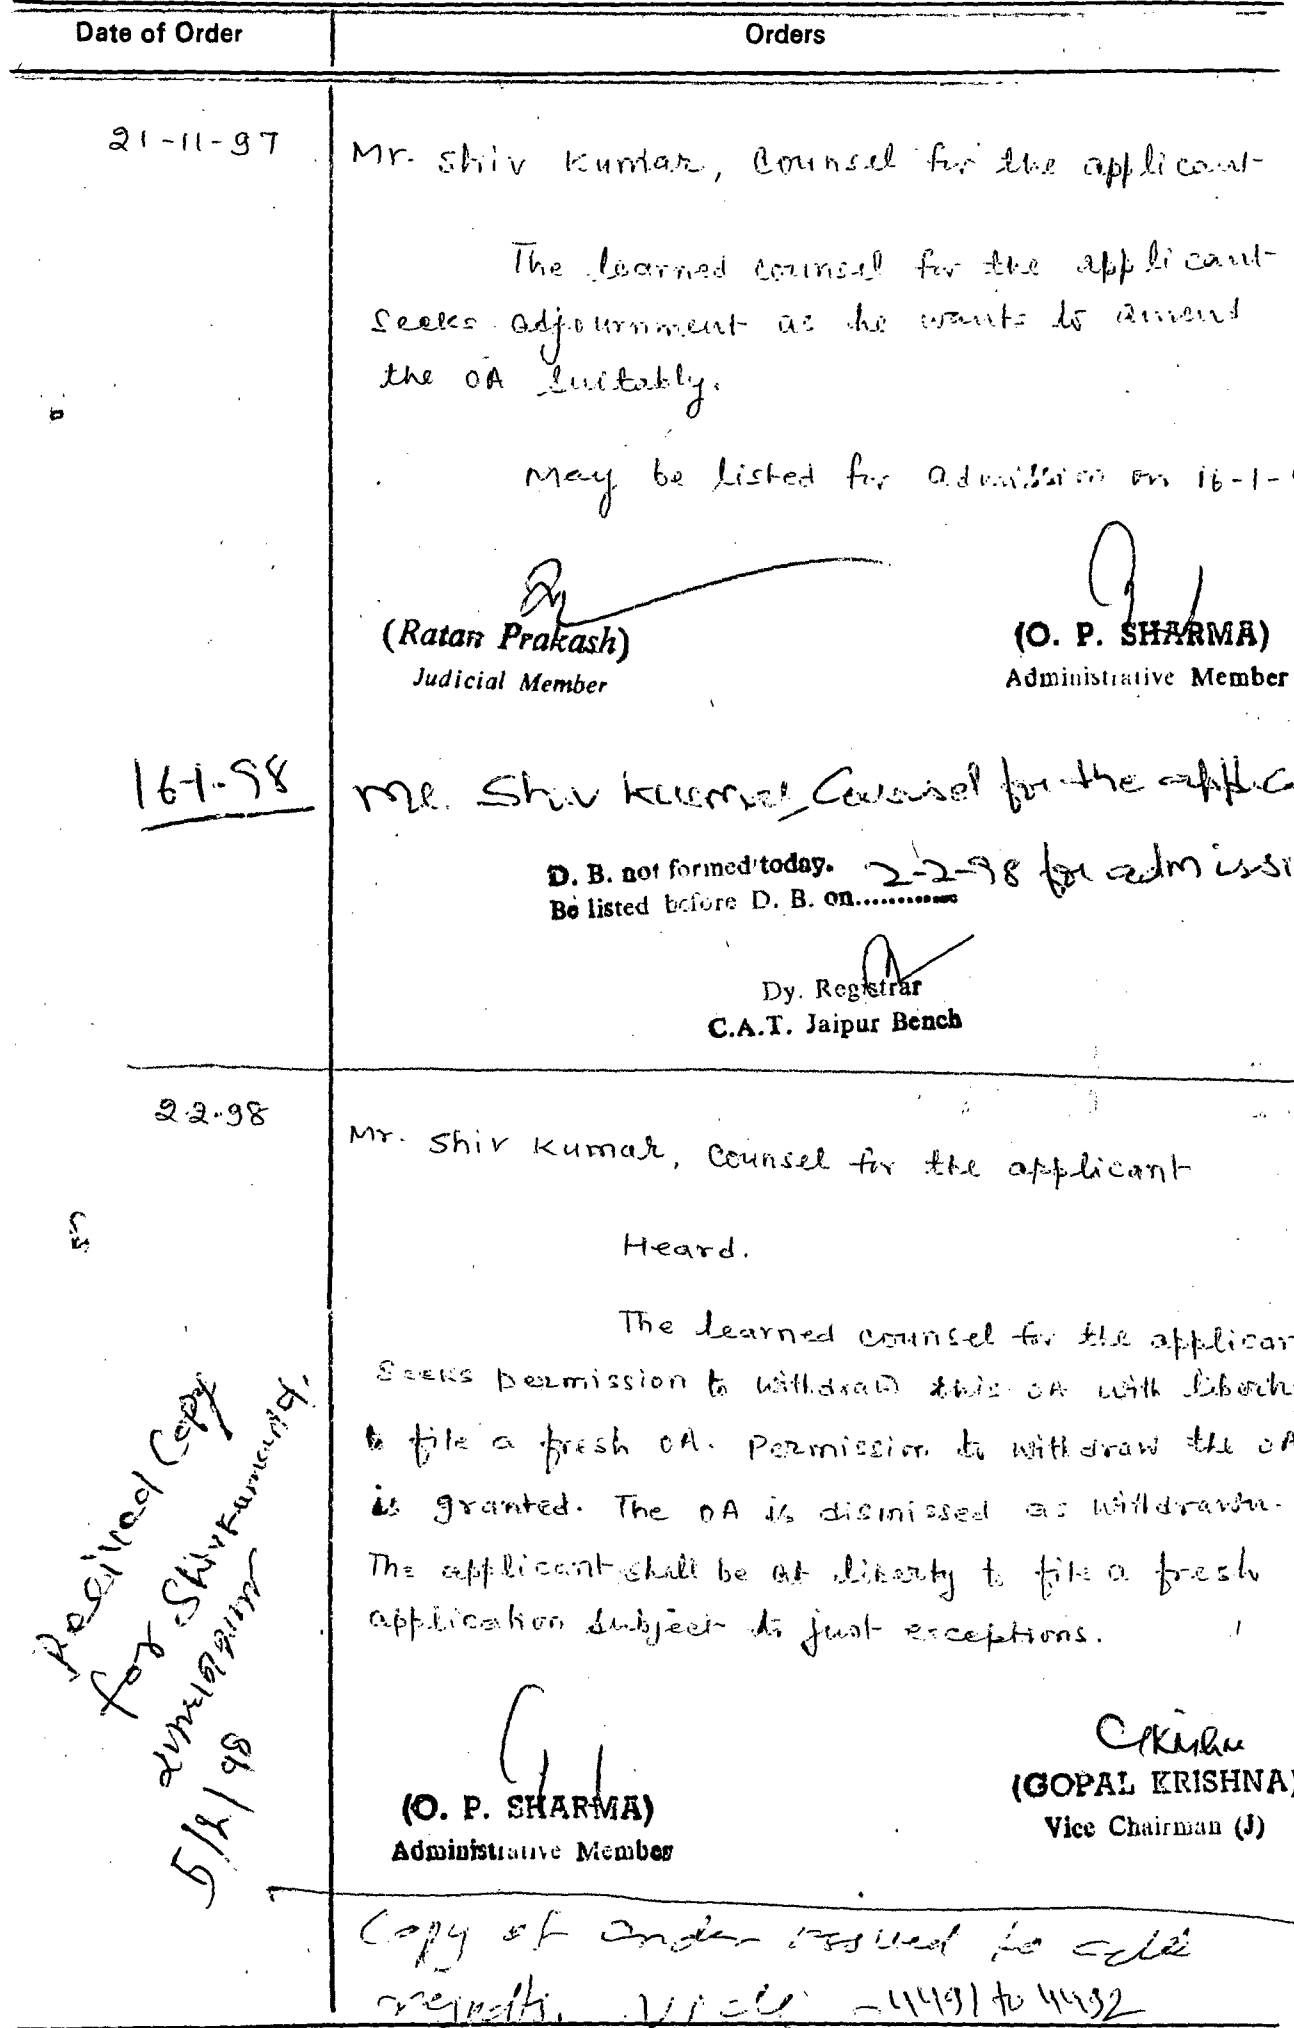 Date of Order
Orders
21-11-97
Mr. Shiv Kumar, Counsel for the applicant
The learned counsel for the applicant
seeks adjournment as he wants to amend
the OA suitably.
May be listed for admission on 16-1-
(Ratan Prakash)
Judicial Member
(O. P. SHARMA)
Administrative Member
16-1-98
Mr. Shiv Kumar, Counsel for the applica
D. B. not formed today.
Be listed before D. B. on............ 2-2-98 for admissi
Dy. Registrar
C.A.T. Jaipur Bench
2.2.98
Mr. Shiv Kumar, Counsel for the applicant
Heard.
The learned counsel for the applican
seeks permission to withdraw this OA with libert
to file a fresh OA. Permission to withdraw the OA
is granted. The OA is dismissed as withdrawn.
The applicant shall be at liberty to file a fresh
application subject to just exceptions.
Received Copy
for Shiv Kumar
5/2/98
(O. P. SHARMA)
Administrative Member
GKrishna
(GOPAL KRISHNA)
Vice Chairman (J)
Copy of order issued to
4491 to 4492